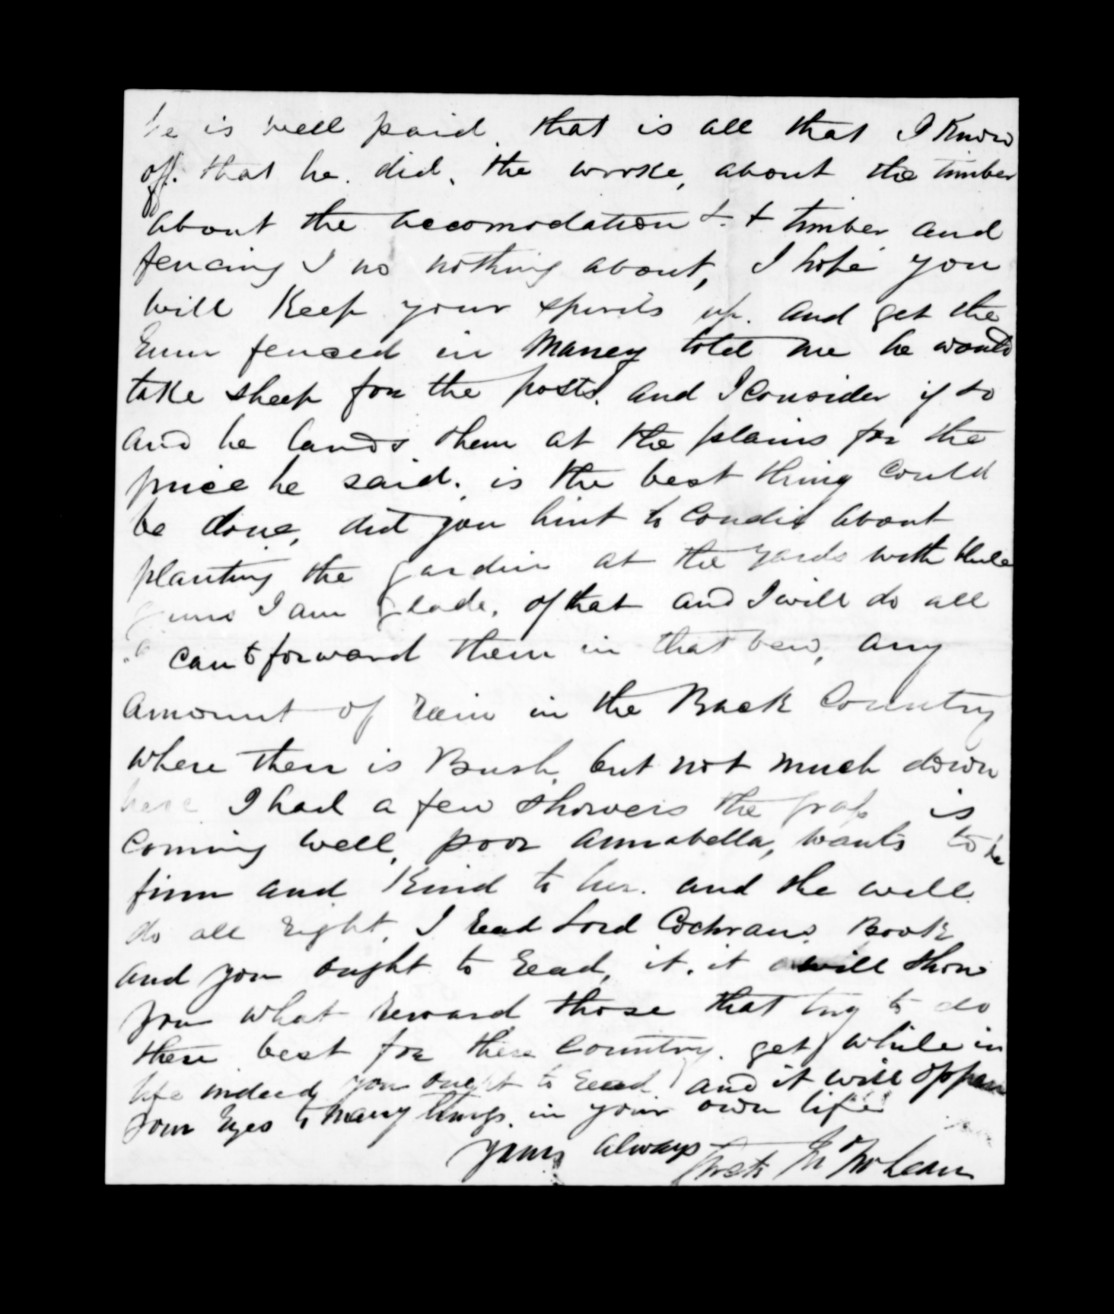 he is well paid. that is all that I Know
off. that he. did. the worke, about the timber
about the accomodation &. & timber and
fencing I no nothing about, I hope you
will Keep your spirits up. and get the
fenced in Maney told me he would
take sheep for the posts. and I Consider if so
and he lands them at the plains for the
price he said. is the best thing Could
be done, did you hint to Condie about
planting the garden at the yards with blue
gums I am glade. of that and I will do all
I can to forward them in that vew, any
amount of rain in the Back Country
where there is Bush, but not much down
here I had a few showers the grass is
Coming well, poor Annabella, wants to be
firm and Kind to her. and she will
do all right. I read Lord Cochrans Book
and you ought to read, it. it will show
you what reward those that try to do
there best for there Country. get while in
life indeed you ought to read and it will oppen
your Eyes to many things in your own life
yours always
McLean